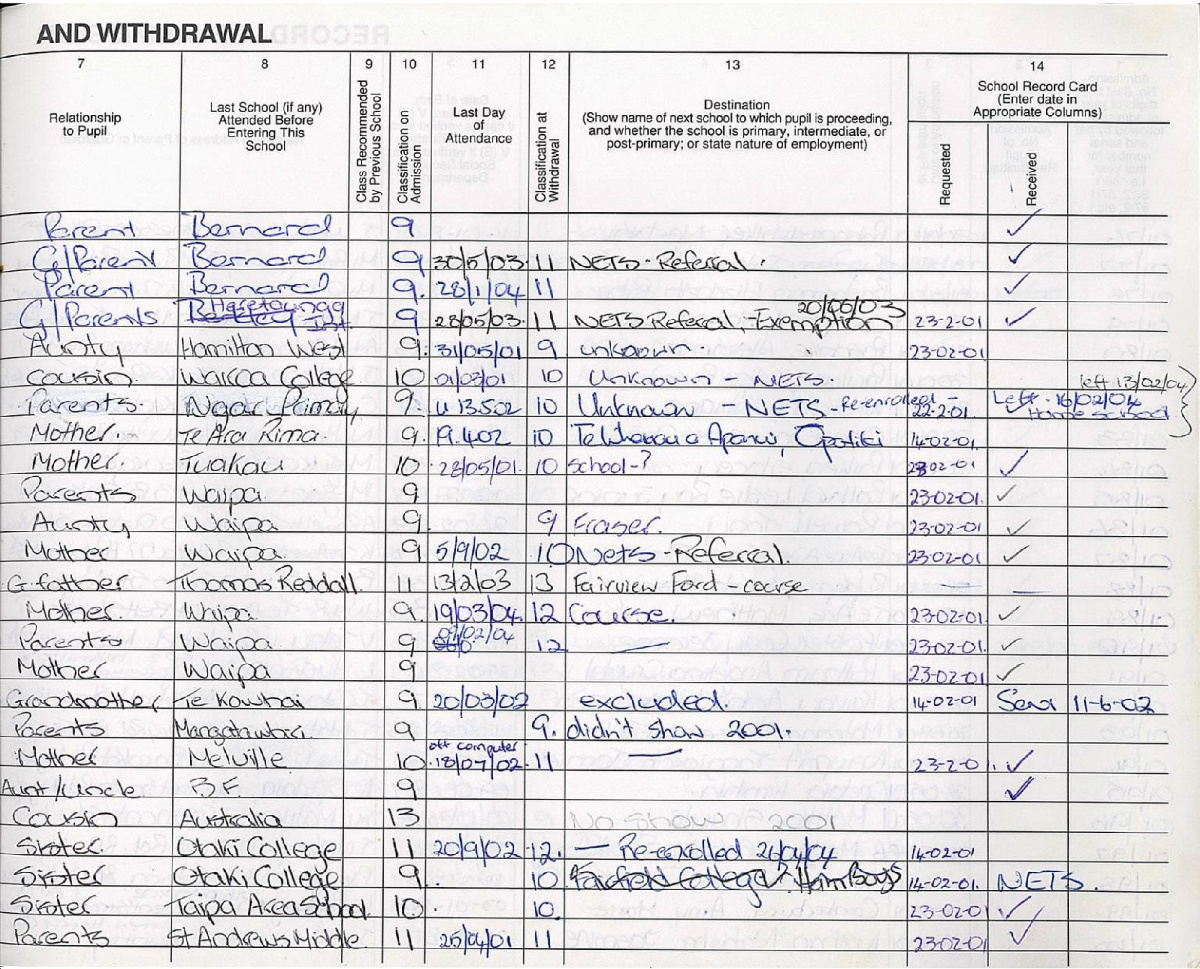 AND WITHDRAWAL
7 8 9 10 11 12 13 14
Relationship to Pupil
Last School (if any) Attended Before Entering This School
Class Recommended by Previous School
Classification on Admission
Last Day of Attendance
Classification at Withdrawal
Destination
(Show name of next school to which pupil is proceeding, and whether the school is primary, intermediate, or post-primary; or state nature of employment)
School Record Card
(Enter date in Appropriate Columns)
Requested
Received
Parent Bernard 9 ✓
G/Parent Bernard 9 30/5/03 11 NETS - Referral. ✓
Parent Bernard 9. 28/1/04 11 ✓
G/Parents 9 28/05/03. 11 NETS Referral - Exemption 20/06/03 23-2-01 ✓
Aunty Hamilton West 9. 31/05/01 9 unknown. 23-02-01
Cousin Wairoa College 10 01/03/01 10 Unknown - NETS. left 13/02/04
Parents Ngar. Primary 9. 13.502 10 Unknown - NETS - Re-enrolled - 22-2-01 Left - 16/02/04 Home school
Mother. Te Ara Rima. 9. 19.402 10 Te Whanau a Apanui, Opotiki 14-02-01
Mother. Tuakau 10 28/05/01. 10 School-? 28-02-01 ✓
Parents Waipa 9 23-02-01. ✓
Aunty Waipa 9. 9 Fraser. 23-02-01 ✓
Mother Waipa 9. 5/9/02 10 Nets - Referral. 23-02-01 ✓
G.father Thomas Reddall. 11 13/2/03 13 Fairview Ford - course — —
Mother Waipa 9. 19/03/04. 12 Course. 23-02-01 ✓
Parents Waipa 9 /02/04 12 — 23-02-01 ✓
Mother Waipa 9 23-02-01 ✓
Grandmother Te Kowhai 9. 20/03/02 excluded. 14-02-01 Sent 11-6-02
Parents 9 9. didn't show 2001.
Mother Melville 10 off computer 18/07/02. 11 — 23-2-01. ✓
Aunt/Uncle B.F. 9 ✓
Cousin Australia 13 No Show 2001
Sister Otaki College 11 20/9/02 12. — Re-enrolled 26/04/04 14-02-01
Sister Otaki College 9. 10 Fairfield College / Ham Boys 14-02-01. NETS.
Sister Taipa Area School. 10. 10. 23-02-01 ✓
Parents St Andrews Middle. 11 25/04/01 11 23-02-01 ✓